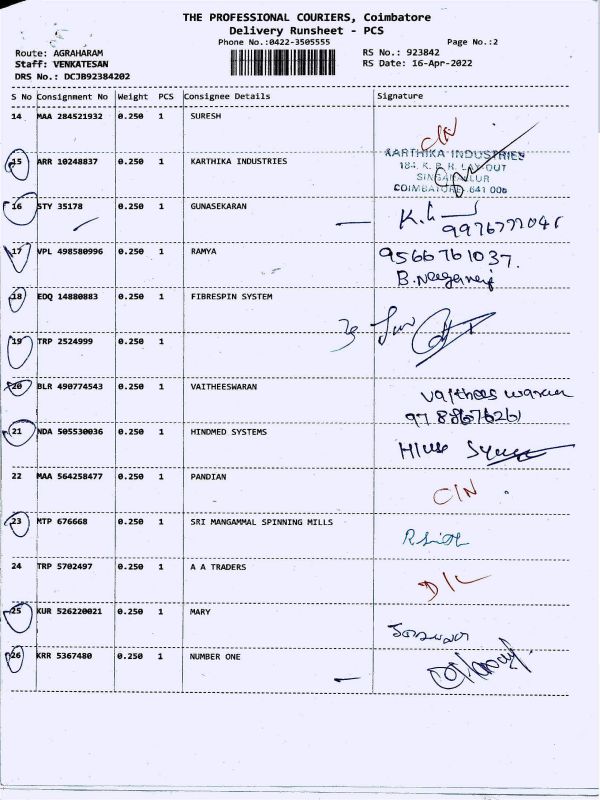 THE PROFESSIONAL COURIERS, Coimbatore
Delivery Runsheet - PCS
Phone No.:0422-3505555
Page No.:2
Route: AGRAHARAM
RS No.: 923842
Staff: VENKATESAN
RS Date: 16-Apr-2022
DRS No.: DCJB92384202
S No Consignment No Weight PCS Consignee Details Signature
14 MAA 284521932 0.250 1 SURESH
C/N
15 ARR 10248837 0.250 1 KARTHIKA INDUSTRIES
KARTHIKA INDUSTRIES
184, K. R. R. LAY-OUT
SINGANALLUR
COIMBATORE-641 005
16 STY 35178 0.250 1 GUNASEKARAN
17 VPL 498580996 0.250 1 RAMYA
9566761037.
18 EDQ 14880883 0.250 1 FIBRESPIN SYSTEM
19 TRP 2524999 0.250 1
20 BLR 490774543 0.250 1 VAITHEESWARAN
Vaitheeswaran
21 NDA 505530036 0.250 1 HINDMED SYSTEMS
22 MAA 564258477 0.250 1 PANDIAN
C/N
23 MTP 676668 0.250 1 SRI MANGAMMAL SPINNING MILLS
24 TRP 5702497 0.250 1 A A TRADERS
D/L
25 KUR 526220021 0.250 1 MARY
26 KRR 5367480 0.250 1 NUMBER ONE